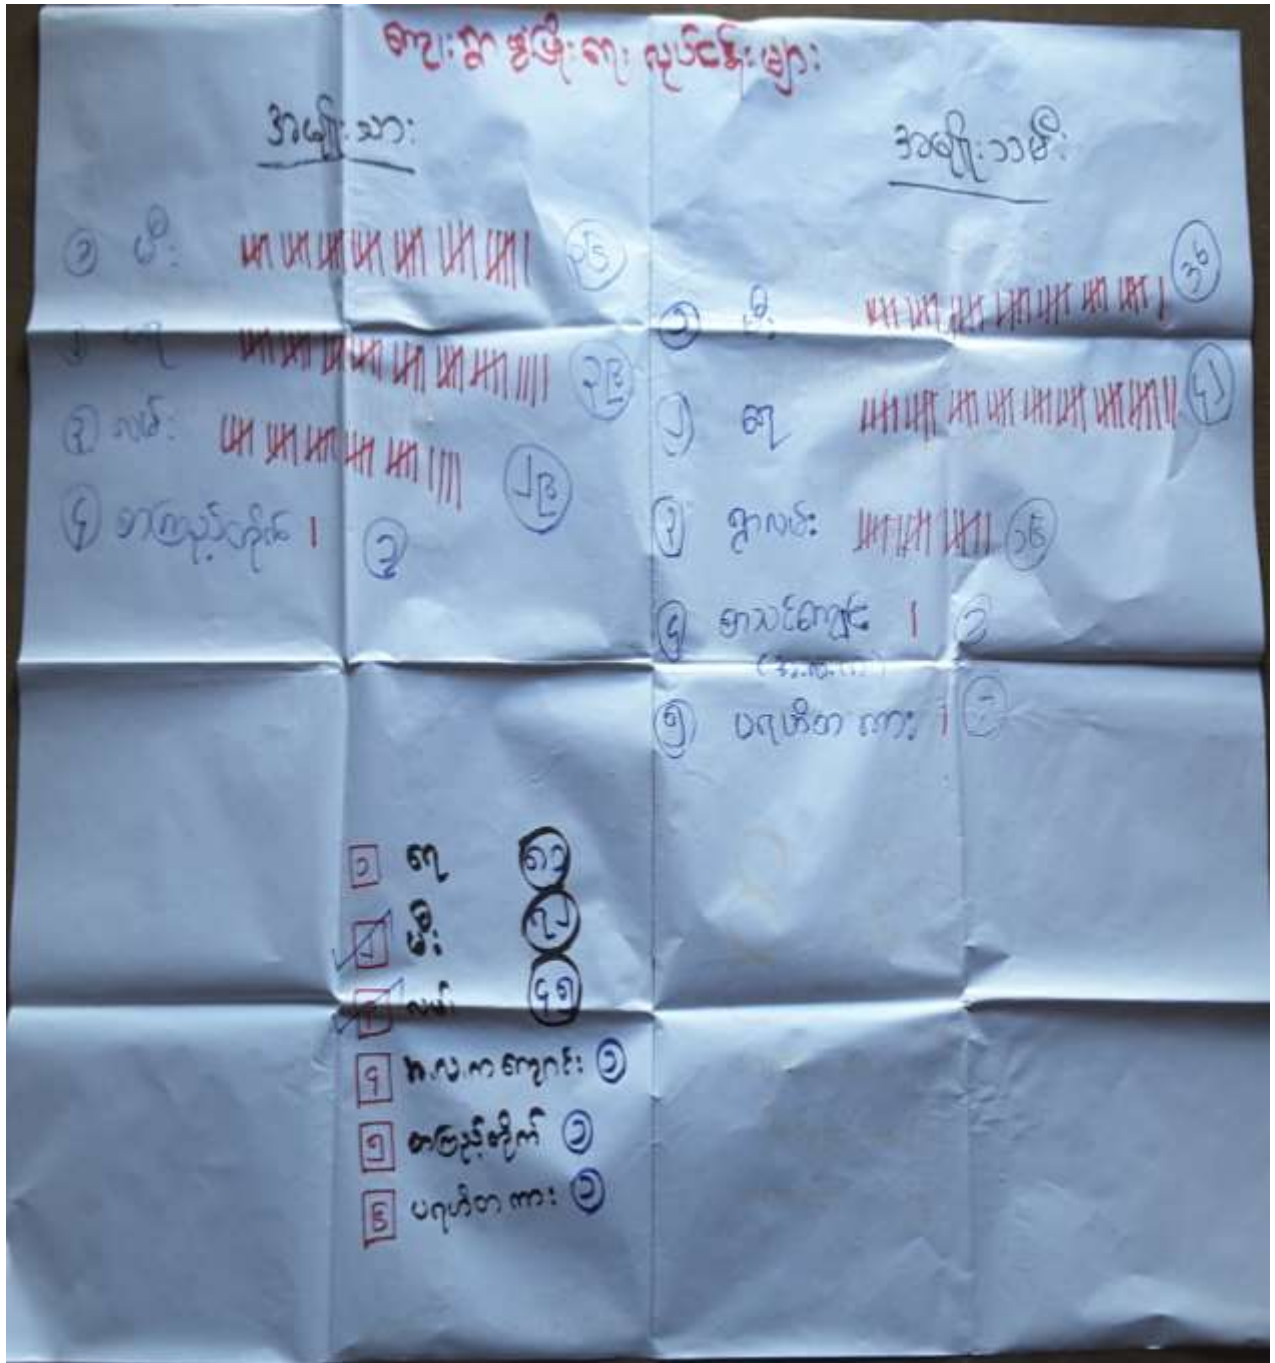 ကျေးရွာ ဖွံ့ဖြိုးရေး လုပ်ငန်းများ
အမျိုးသား
၁ မီး ၃၆
၂ ရေ ၃၉
၃ လမ်း ၂၉
၄ စာကြည့်တိုက် ၁
အမျိုးသမီး
၁ မီး ၃၆
၂ ရေ ၄၂
၃ ရွာလမ်း ၁၆
၄ စာသင်ကျောင်း ၁
(အ.လ.က)
၅ ပရဟိတ ကား ၁
၁ ရေ ၈၁
၂ မီး ၇၂
၃ လမ်း ၄၅
၄ အ.လ.က ကျောင်း ၁
၅ စာကြည့်တိုက် ၁
၆ ပရဟိတ ကား ၁